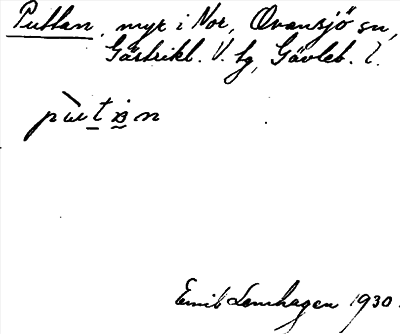 Puttan, myr i Nor, Ovansjö sn,
Gästrikl. V. tg, Gävleb. l.
Emil Lenhagen 1930.